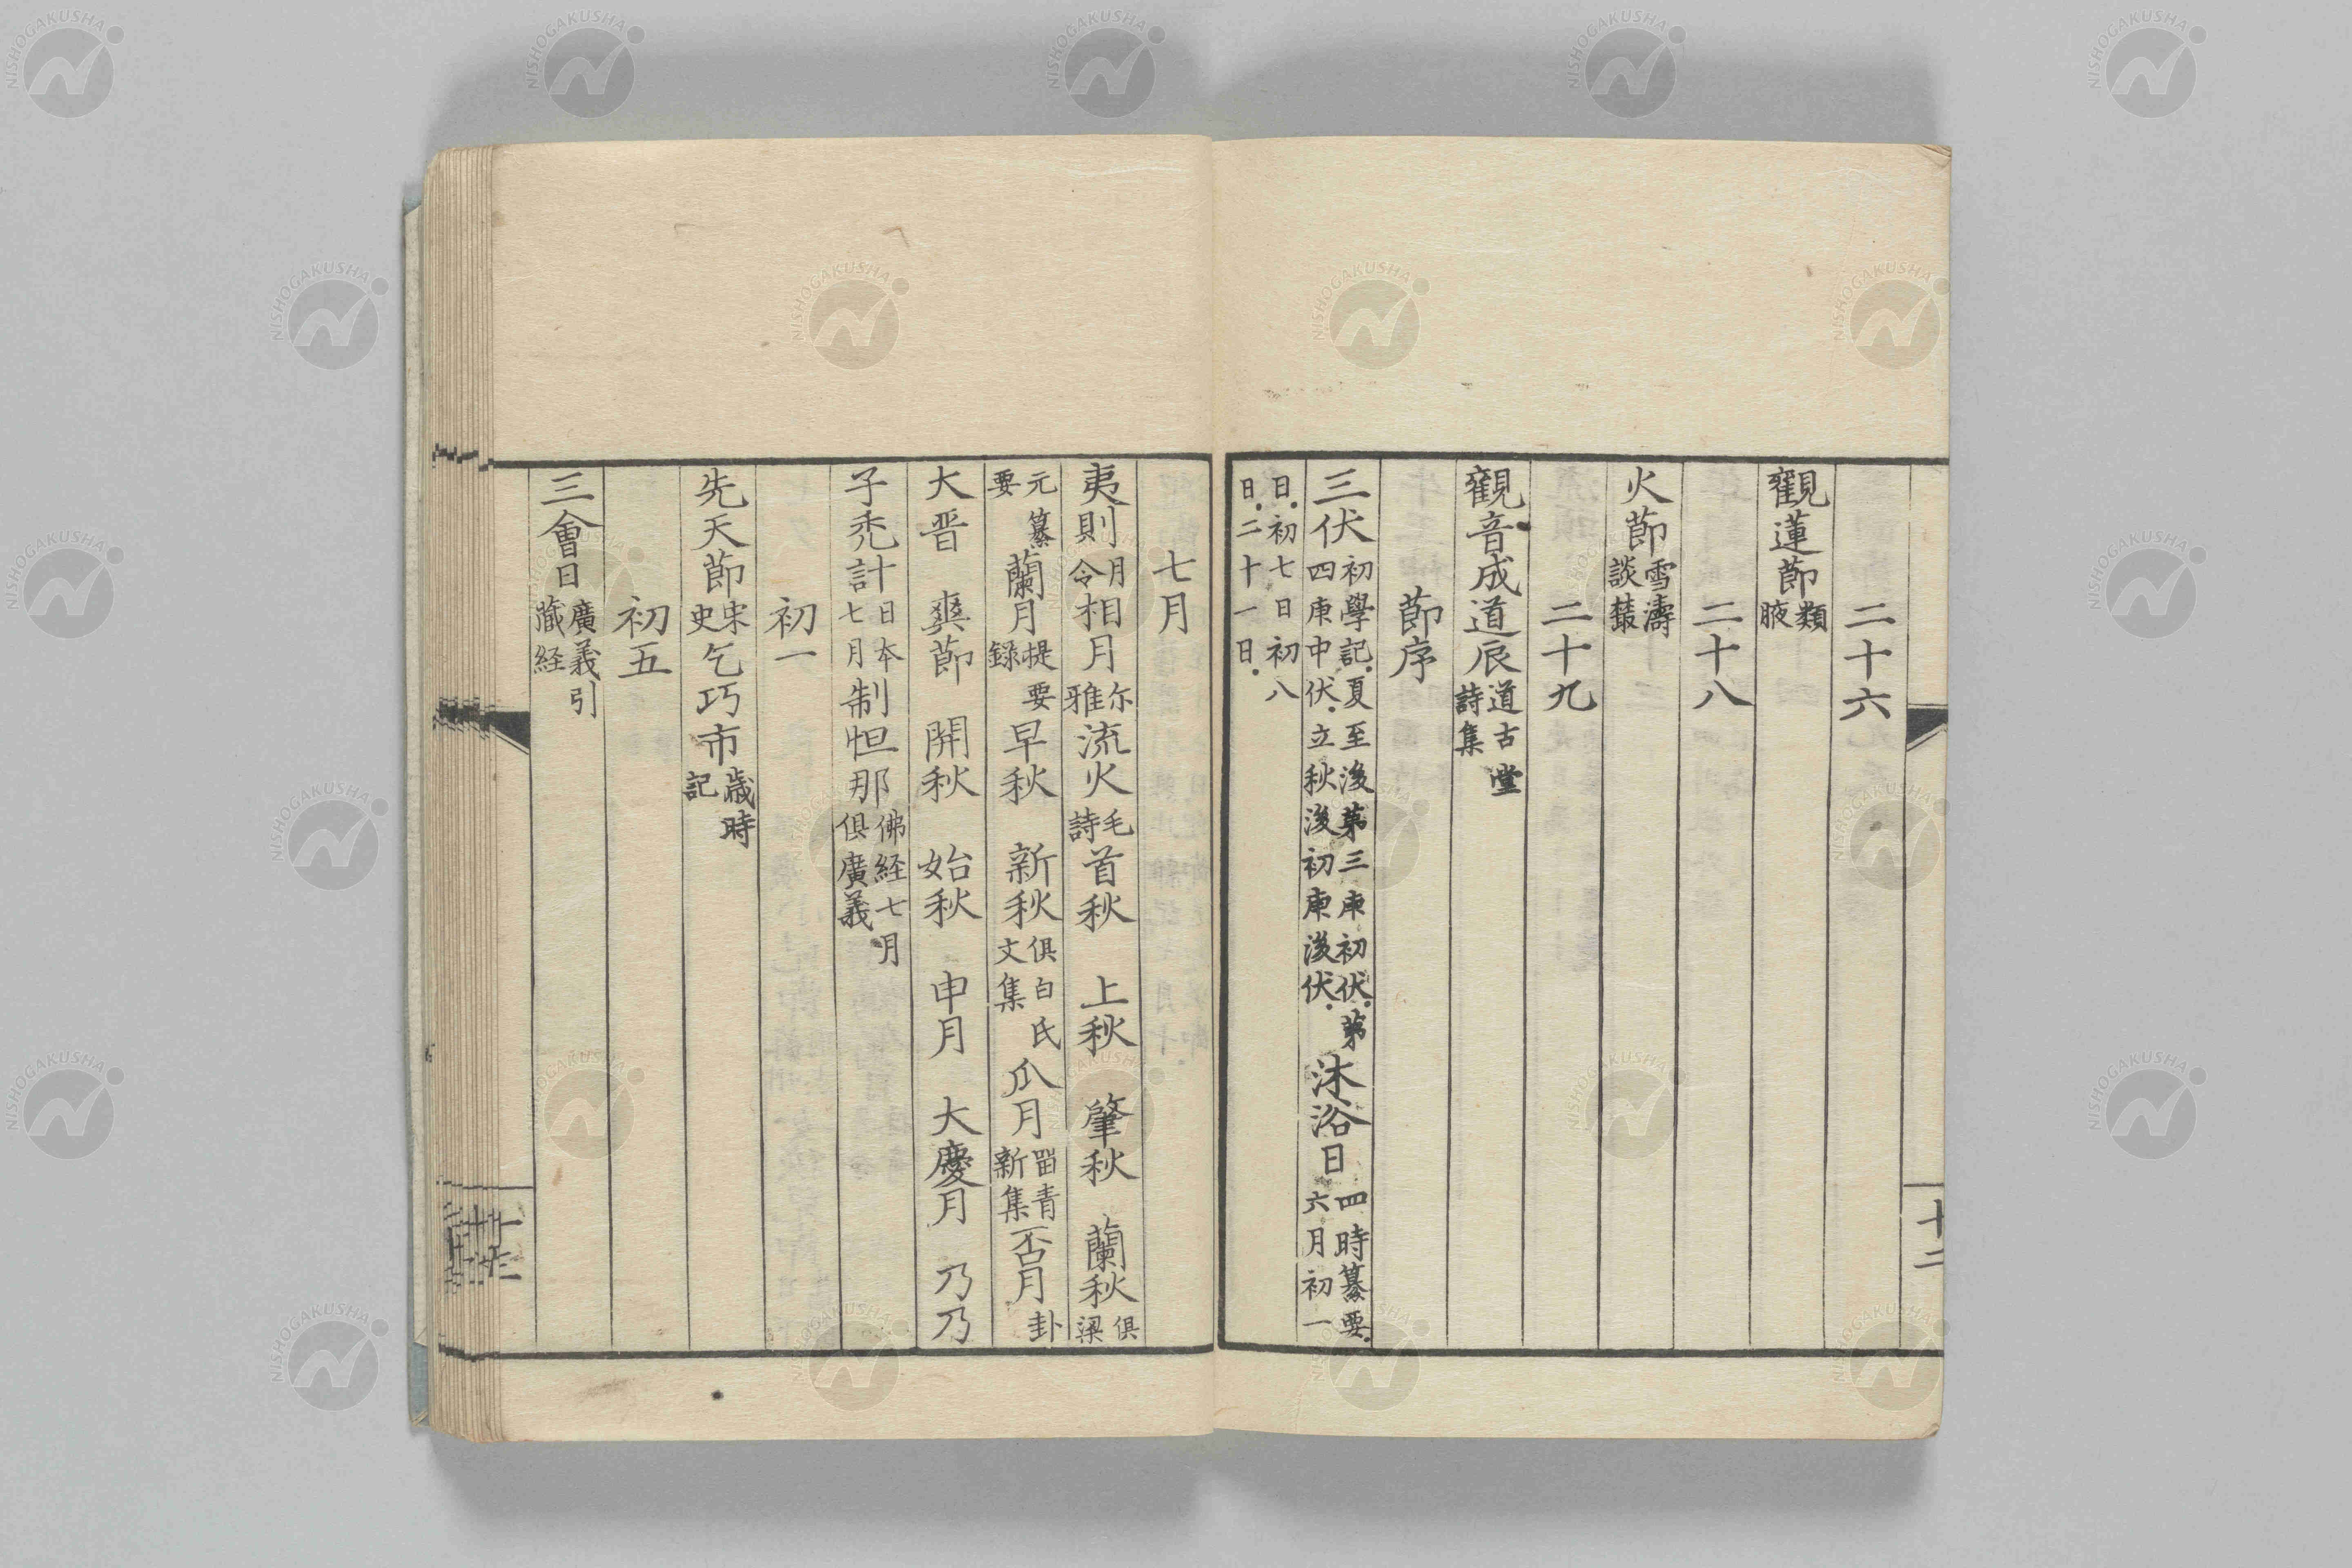 二十六
觀蓮節類腋
二十八
火節雪濤談叢
二十九
觀音成道辰道古堂詩集
節序
三伏初學記.夏至後第三庚初伏.第四庚中伏.立秋後初庚後伏.沐浴日四時纂要.六月初一
日.初七日初八日.二十一日.
十二
七月
夷則月令相月尓雅流火毛詩首秋 上秋 肇秋 蘭秋俱梁
元纂要蘭月提要録早秋 新秋俱白氏文集瓜月畱青新集否月卦
大晋 爽節 開秋 始秋 申月 大慶月 乃乃
子禿計日本七月制怛那佛経七月俱廣義
初一
先天節宋史乞巧市歳時記
初五
三會日廣義引蔵経
NISHOGAKUSHA